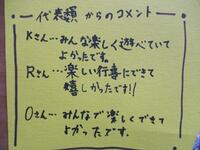 代表類 からのコメント
Kさん…みんな楽しく遊べていて
よかったです。
Rさん…楽しい行事にできて
嬉しかったです!!
Oさん…みんなで楽しくできて
よかったです。